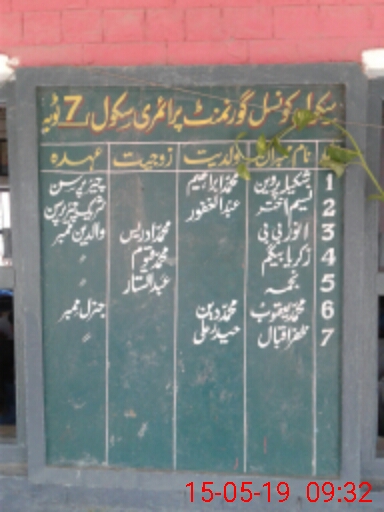 سکول کونسل گورنمنٹ پرائمری سکول 7 ٹوپہ
نام ممبران ولدیت زوجیت عہدہ
1 شکیلہ پروین محمد ابراہیم چیئر پرسن
2 نسیم اختر عبدالغفور
3 انور بی بی محمد ادریس والدین ممبر
4 زکریا بیگم محمد قیوم 〃
5 نجمہ عبدالستار 〃
6 محمد یعقوب محمد دین جنرل ممبر
7 ظفر اقبال حیدر علی 〃
15-05-19 09:32